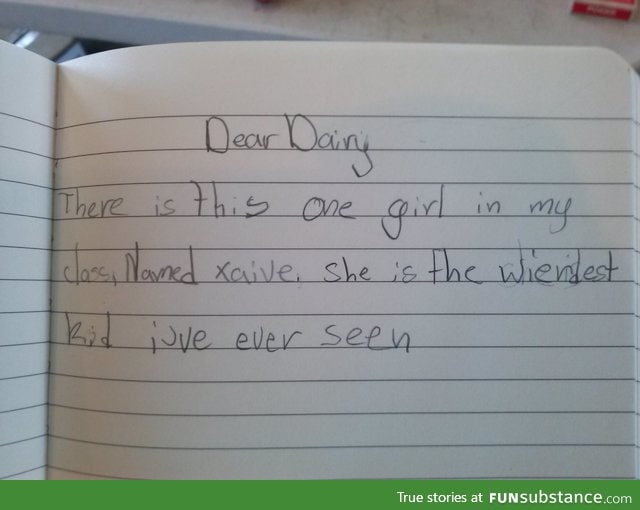 Dear Dairy
There is this one girl in my
class, Named xaive. she is the wierdest
kid i've ever seen
True stories at FUNsubstance.com